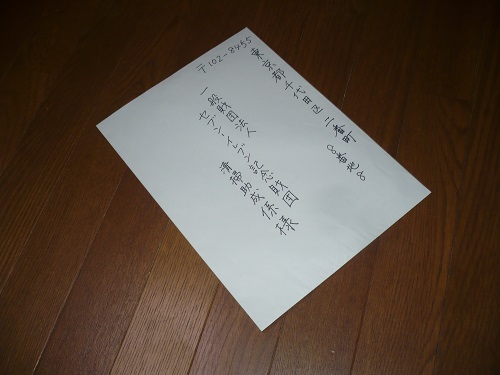 〒102-8455
東京都千代田区二番町8番地8
一般財団法人
セブン-イレブン記念財団
清掃助成係様